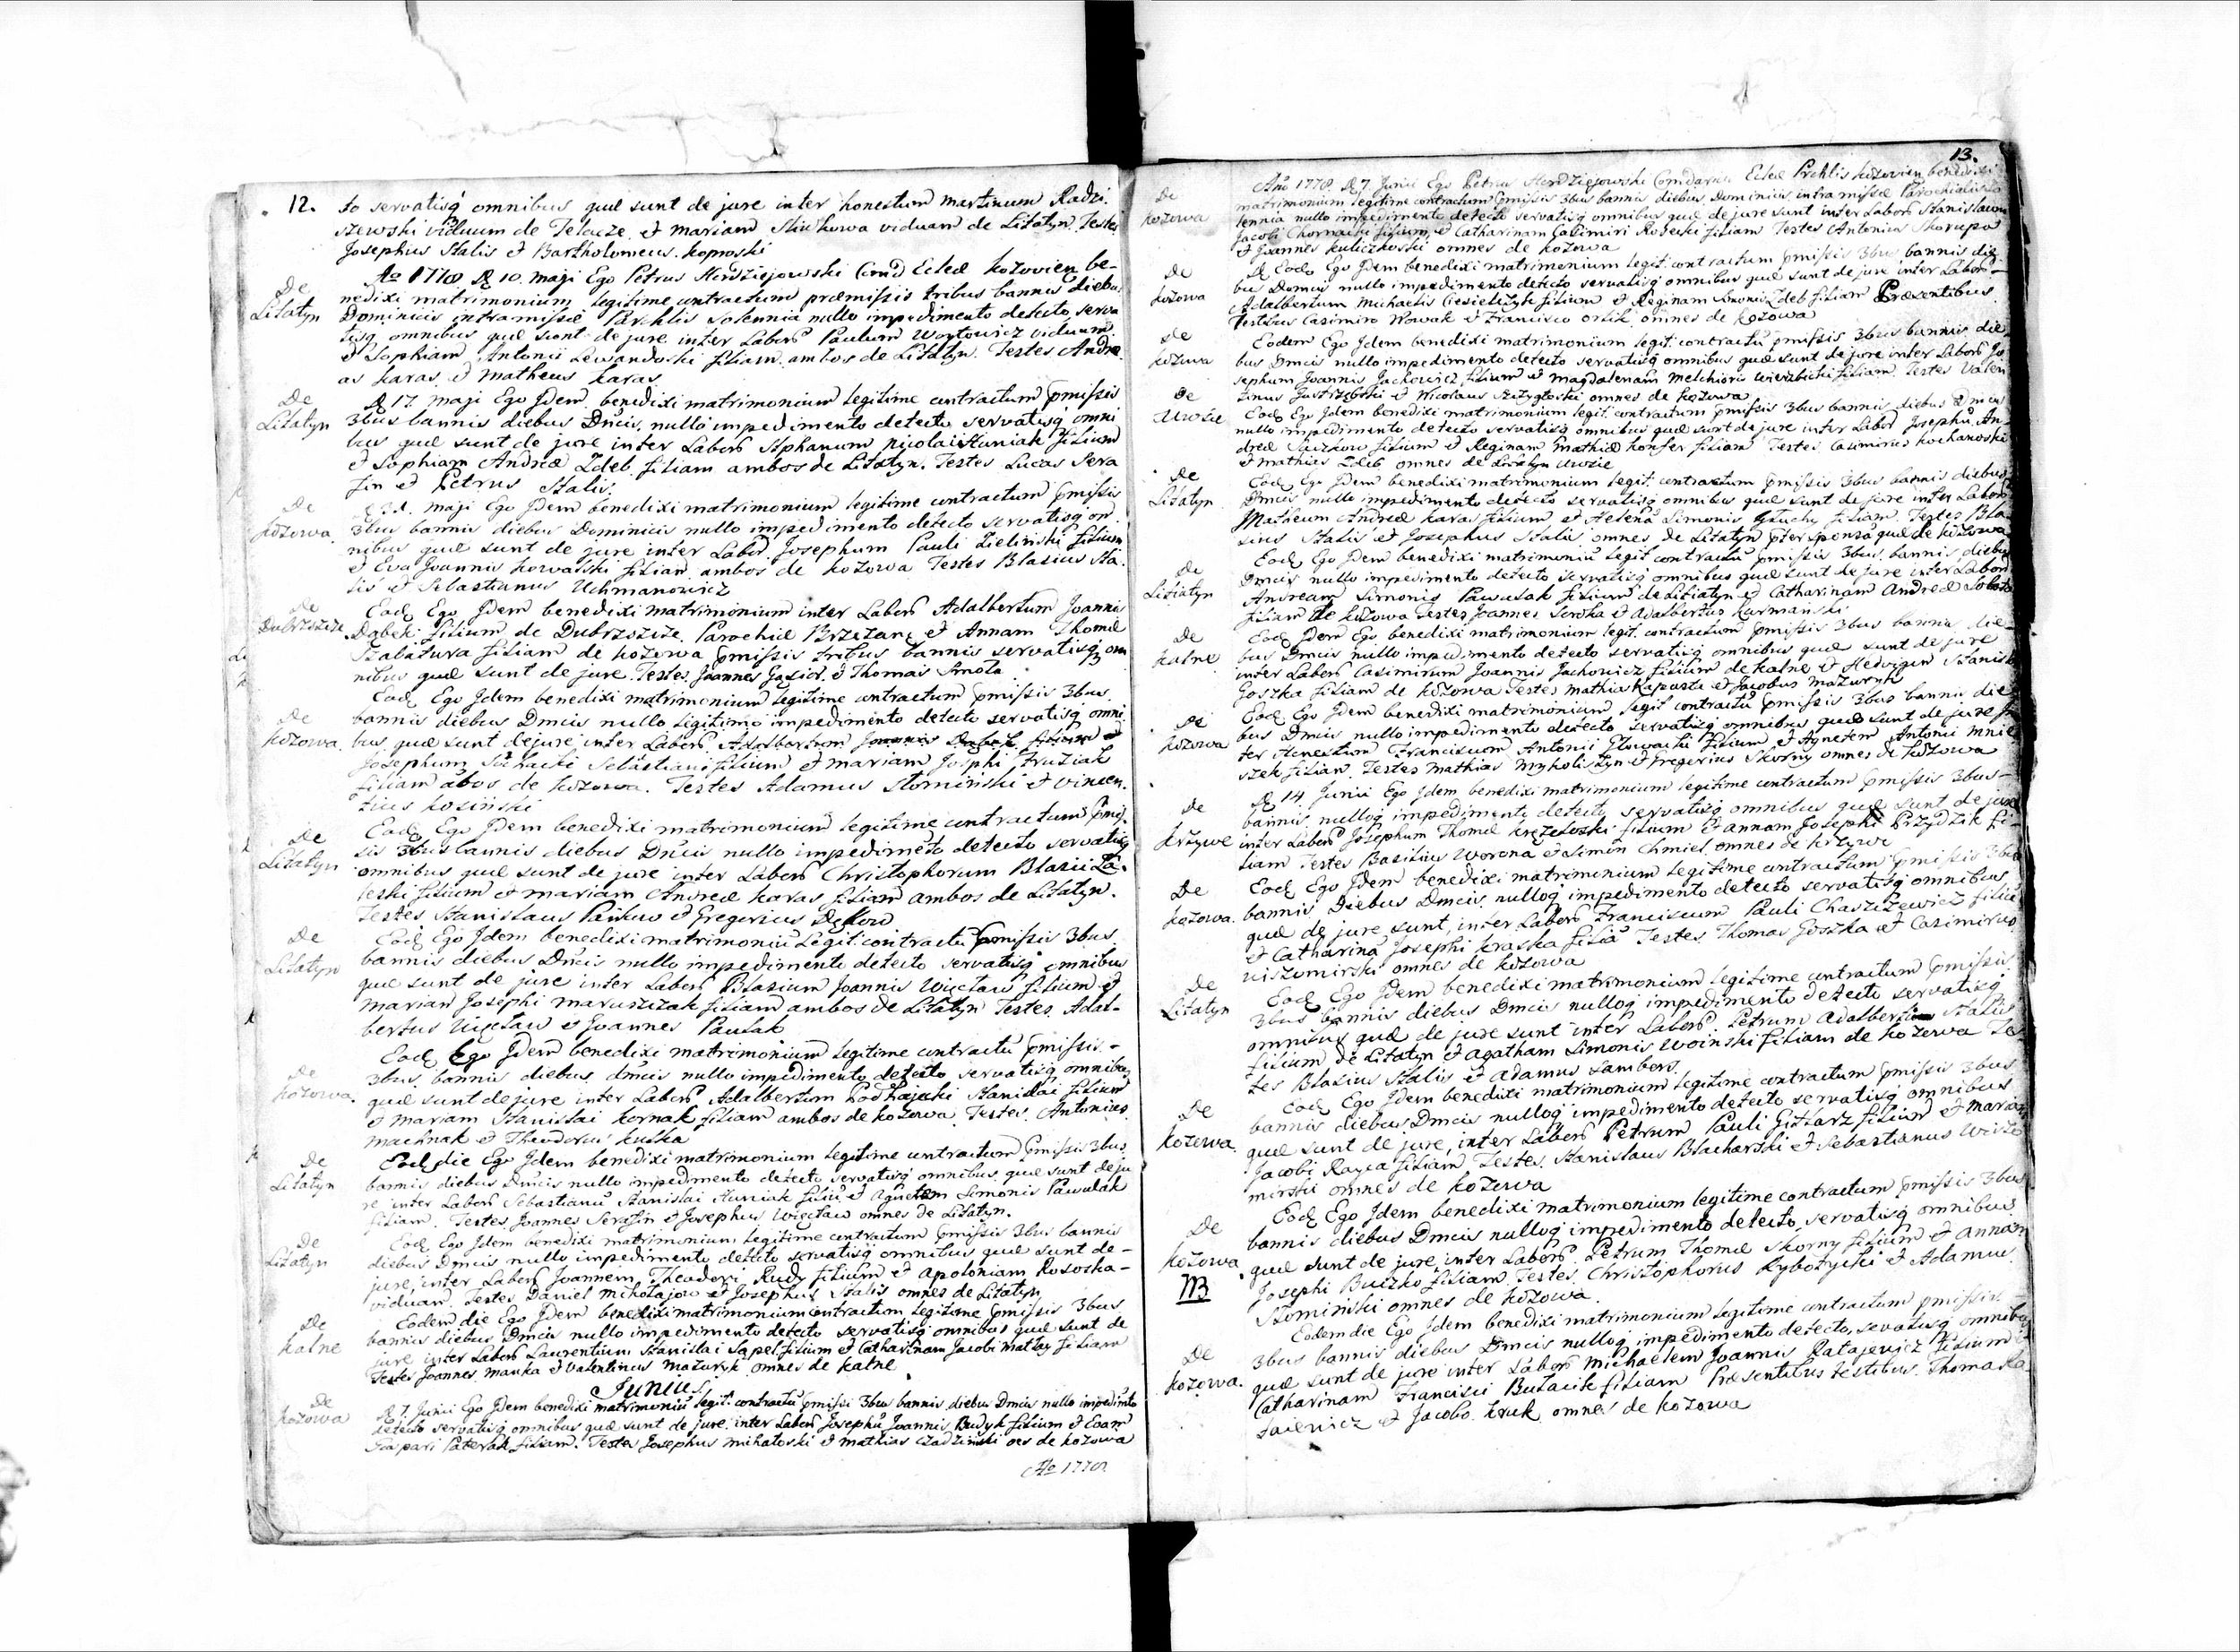 12. to servatisq omnibus quæ sunt de jure inter honestum Martinum Radzi-
szewski viduum de Telacze et Mariam viduam de Litatyn. Testes
Josephus Stalis et Bartholomeus Koprowski
De Litatyn
Ao 1778 D 10. Maji Ego Petrus Herdziejowski Comd Eclæ Kozovien be-
nedixi matrimonium legitime contractum præmissis tribus bannis diebus
Dominicis intra missæ Parchlis Solennia nullo impedimento detecto, serva
tisq omnibus quæ sunt de jure inter Labor Paulum Woytowicz viduum
et Sophiam Antonii Lewandoski filiam ambos de Litatyn. Testes Andre-
as Karas et Matheus Karas
De Litatyn
D 17. Maji Ego Jdem benedixi matrimonium legitime contractum pmissis
3bus bannis diebus Dnicis, nullo impedimento detecto servatisq omni
bus quæ sunt de jure inter Labor Stphanum Nicolai Huniak filium
et Sophiam Andreæ Zdeb filiam ambos de Litatyn. Testes Lucas Sera
fin et Petrus Stalis.
De Kozowa
Maji Ego Jdem benedixi matrimonium legitime contractum pmissis
3bus bannis diebus Dominicis nullo impedimento detecto servatisq om
nibus quæ sunt de jure inter Labor. Josephum Pauli Zielinski filium
et Eva Joannis Kowalski filiam ambos de Kozowa Testes Blasius Sta-
lis et Sebastianus Uchmanowicz
De Dubrzszcze
Eod Ego Jdem benedixi matrimonium inter Labor Adalbertum Joannis
Dąbek filium de Dubrzszcze Parochiæ Brzezan et Annam Thomæ
Szalatura filiam de Kozowa pmissis tribus bannis servatisq om
nibus quæ sunt de jure. Testes Joannes Gąsior et Thomas Smola
De Kozowa
Eod Ego Jdem benedixi matrimonium legitime contractum pmissis 3bus
bannis diebus Dmcis nullo legitimo impedimento detecto servatisq omni
bus quæ sunt de jure inter Labor. Adalbertum Joannis Dąbek filium et
Josephum Suchacki Sebastiani filium et Mariam Josphi Fruziak
filiam abos de Kozowa. Testes Adamus Słominski et Vincen-
tius Kosinski
De Litatyn
Eod Ego Jdem benedixi matrimonium legitime contractum pmis-
sis 3bus bannis diebus Dnicis nullo impedimeto detecto servatisq
omnibus quæ sunt de jure inter Labor Christophorum Blasii Za-
leski filium et Mariam Andreæ Karas filiam ambos de Litatyn.
Testes Stanislaus Pańkow et Gregorius Dątkow
De Litatyn
Eod Ego Jdem benedixi matrimoniu Legit. contractu pmissis 3bus
bannis diebus Dnicis nullo impedimento detecto servatisq omnibus
quæ sunt de jure inter Labor Blasium Joannis Więcław filium et
Mariam Josephi Maruszczak filiam ambos de Litatyn Testes Adal-
bertus Więcław et Joannes Pawlak
De Kozowa
Eod Ego Jdem benedixi matrimonium legitime contractu pmissis-
3bus bannis diebus dmcis nullo impedimento detecto servatisq omnibus
quæ sunt de jure inter Labor Adalbertum Podhajecki Stanislai filium
et Mariam Stanislai Kornak filiam ambos de Kozowa. Testes. Antonius
Machnak et Theodorus Kulka
De Litatyn
Eod die Ego Jdem benedixi matrimonium legitime contractum pmissis 3bus
bannis diebus Dnicis nullo impedimento detecto servatisq omnibus quæ sunt de ju
re inter Labor Sebastianu Stanislai Huniak filiu et Agnetem Simonis Pawulak
filiam. Testes Joannes Serafin et Josephus Więcław omnes de Litatyn.
De Litatyn
Eod Ego Jdem benedixi matrimonium legitime contractum pmissis 3bus bannis
diebus Dmcis nullo impedimento detecto servatisq omnibus quæ sunt de-
jure, inter Labor Joannem Theodori Rudy filium et Apoloniam Kososka-
viduam. Testes Daniel Mikołajow et Josephus Stalis omnes de Litatyn
De Kalne
Eodem die Ego Jdem benedixi matrimonium contractum legitime pmissis 3bus
bannis diebus Dmcis nullo impedimento detecto servatisq omnibus quæ sunt de
jure inter Labor Laurentium Stanislai Sapel filium et Catharinam Jacobi Matley filiam
Testes Joannes Mauka et Valentinus Mazuryk omnes de Kalne
Junius.
De Kozowa
D 7. Junii Ego Jdem benedixi matrimoniu legit. contractu pmissi 3bus bannis diebus Dmcis nullo impedimto
detecto servatisq omnibus quæ sunt de jure inter Labor Josephu Joannis Budyk filium et Evam
Gaspari Paterak filiam. Testes Josephus Michałoski et Mathias Czadzinski oes de Kozowa
Ao 1778
13.
De Kozowa
Ano 1778. D 7. Junii Ego Petrus Herdziejowski Comdarius Eclæ Prchlis Kozovien benedixi
matrimonium legitime contractum pmissis 3bus bannis diebus Dominicis intra missæ Parochialis So
lennia nullo impedimento detecto servatisq omnibus quæ de jure sunt inter Labor Stanislaum
Jacobi Chornacki filium et Catharinam Casimiri Kosecki filiam Testes Antonius Skorupa
et Joannes Kuliczkoski omnes de Kozowa
De Kozowa
D Eodo Ego Jdem benedixi matrimonium legit. contractum pmissis 3bus bannis die
bus Domnis nullo impedimento detecto servatisq omnibus quæ sunt de jure inter Labor-
Adalbertum Michaelis Ciesielczyk filium et Reginam Antonii Zdeb filiam Præsentibus
Testibus Casimiro Nowak et Francisco Orlik omnes de Kozowa
De Kozowa
Eodem Ego Jdem benedixi matrimonium legit. contractu pmissis 3bus bannis die
bus Dmcis nullo impedimento detecto servatisq omnibus quæ sunt de jure inter Labor Jo
sephum Joannis Jachowicz filium et Magdalenam Melchioris Wierzbicki filiam. Testes Valen
tinus Jastrzębski et Nicolaus Strzygłoski omnes de Kozowa
De Uwsie
Eod Ego Jdem benedixi matrimonium legit. contractum pmissis 3bus bannis diebus Dmcis
nullo impedimento detecto servatisq omnibus quæ sunt de jure inter Labor Josephu An-
dreæ filium et Reginam Mathiæ Konfer filiam Testes Casimirus Kochanoski
et Mathias Zdeb omnes de Uwsie
De Litatyn
Eod Ego Jdem benedixi matrimonium legit. contractum pmissis 3bus bannis diebus
Dmcis nullo impedimento detecto servatisq omnibus quæ sunt de jure inter Labor
Matheum Andreæ Karas filium et Helena Simonis Głuchy filiam. Testes Bla-
sius Stalis et Josephus Stalis omnes de Litatyn pter sponsa quæ de Kozowa
De Litiatyn
Eod Ego Jdem benedixi matrimoniu legit. contractu pmissis 3bus bannis diebus
Dmcis nullo impedimento detecto servatisq omnibus quæ sunt de jure inter Labor
Andream Simonis Pawulak filium de Litiatyn et Catharinam Andreæ
filiam de Kozowa Testes Joannes Sroka et Adalbertus Karmański
De Kalne
Eod Jdem Ego benedixi matrimonium legit. contractum pmissis 3bus bannis die-
bus Dmcis nullo impedimento detecto servatisq omnibus quæ sunt de jure
inter Labor Casimirum Joannis Jachowicz filium de Kalne et Hedvigem Stanisl
Goszka filiam de Kozowa Testes Mathias Kapusta et Jacobus Mazuryk
De Kozowa
Eod Ego Jdem benedixi matrimonium legit contractu pmissis 3bus bannis die
bus Dmcis nullo impedimento detecto servatisq omnibus quæ sunt de jure in
ter Honestum Franciscum Antonii Głowacki filium et Agnetem Antonii Mnie
szek filiam. Testes Mathias Mykoliszyn et Gregorius Skorny omnes de Kozowa
De Krzywe
D 14. Junii Ego Jdem benedixi matrimonium legitime contractum pmissis 3bus-
bannis nulloq impedimento detecto servatisq omnibus quæ sunt de jure
inter Labor Josephum Thomæ Krężeloski filium et Annam Josephi Przydzik fi-
liam Testes Basilius Worona et Simon Chmiel omnes de Krzywe
De Kozowa.
Eod Ego Jdem benedixi matrimonium legitime contractum pmissis 3bus
bannis Diebus Dmcis, nulloq impedimento detecto servatisq omnibus
quæ de jure sunt, inter Labor Franciscum Pauli Chaszczewicz filiu
et Catharina Josephi Kraska filia Testes Thomas Goszka et Casimirus
Wiszomirski omnes de Kozowa
De Litatyn
Eod Ego Jdem benedixi matrimonium legitime contractum pmissis
3bus bannis diebus Dmcis nulloq impedimento detecto servatisq
omnibus quæ de jure sunt inter Labor. Petrum Adalberti Stalis
filium de Litatyn et Agatham Simonis Woinski filiam de Kozowa Tes
tes Blasius Stalis et Adamus Sambors.
De Kozowa.
Eod Ego Jdem benedixi matrimonium legitime contractum pmissis 3bus
bannis diebus Dmcis nulloq impedimento detecto servatisq omnibus
quæ sunt de jure, inter Labor Petrum Pauli Gitlarz filium et Mariam
Jacobi Rayca filiam Testes. Stanislaus Blacharski et Sebastianus Wiszo
mirski omnes de Kozowa
De Kozowa
NB
Eod Ego Jdem benedixi matrimonium legitime contractum pmissis 3bus
bannis diebus Dmcis nulloq impedimento detecto, servatisq omnibus
quæ sunt de jure inter Labor. Petrum Thomæ Skorny filium et Annam
Josephi Buczko filiam. Testes. Christophorus Rybotycki et Adamus
Słominski omnes de Kozowa.
De Kozowa.
Eodem die Ego Jdem benedixi matrimonium legitime contractum pmissis
3bus bannis diebus Dmcis nulloq impedimento detecto, sevatisq omnibus
quæ sunt de jure inter Labor Michaelem Joannis Ratajewicz filium et
Catharinam Francisci Butacik filiam Præsentibus testibus. Thoma Ra
taiewicz et Jacobo Kruk omnes de Kozowa